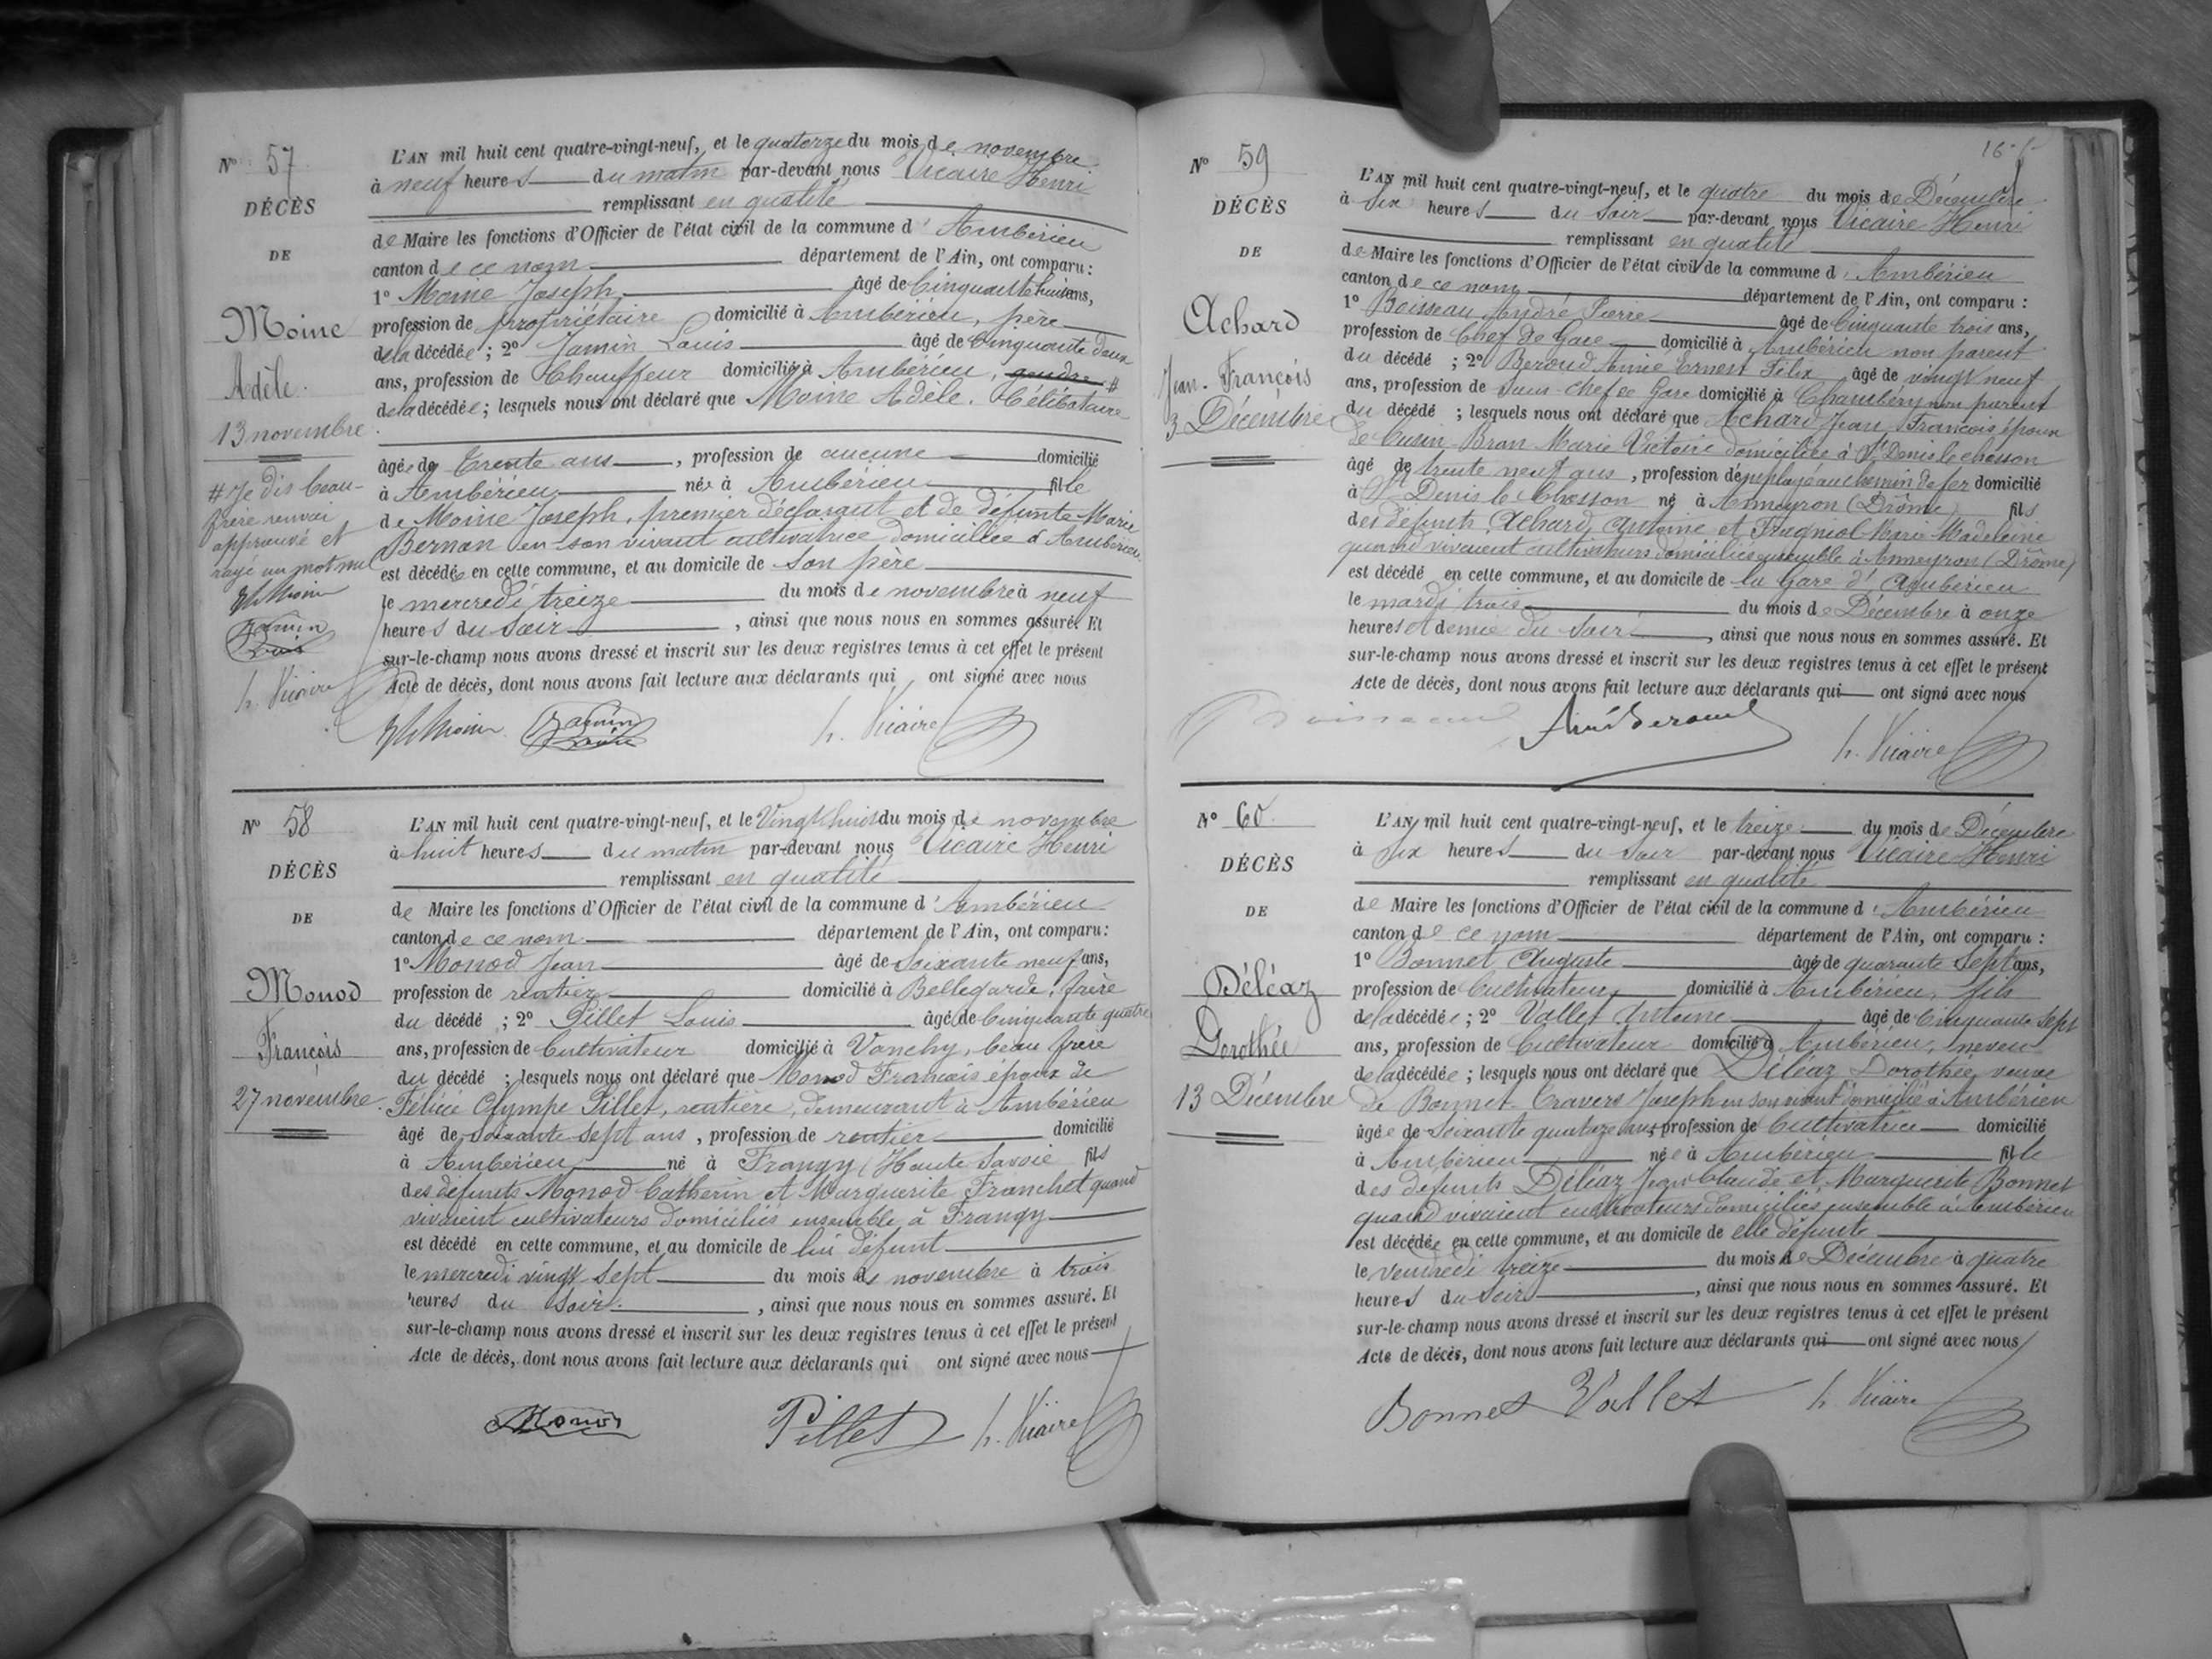 N° 57
DÉCÈS
DE
Moine
Adèle.
13 novembre
# Je dis beau-
frère renvoi
approuvé et
rayé un mot nul
Jh Moine
Jamin
Louis
h. Vicaire
L'AN mil huit cent quatre-vingt-neuf, et le quatorze du mois de novembre
à neuf heures du matin par-devant nous Vicaire Henri
remplissant en qualité
de Maire les fonctions d'Officier de l'état civil de la commune d'Ambérieu
canton de ce nom département de l'Ain, ont comparu :
1° Moine Joseph âgé de Cinquante huit ans,
profession de propriétaire domicilié à Ambérieu, père
de la décédée ; 2° Jamin Louis âgé de Cinquante deux
ans, profession de Chauffeur domicilié à Ambérieu, gendre #
de la décédée ; lesquels nous ont déclaré que Moine Adèle. Célibataire
âgée de Trente ans, profession de aucune domicilié
à Ambérieu née à Ambérieu fille
de Moine Joseph, premier déclarant et de défunte Marie
Bernan en son vivant cultivatrice domiciliée à Ambérieu
est décédée en cette commune, et au domicile de son père
le mercredi treize du mois de novembre à neuf
heures du soir, ainsi que nous nous en sommes assuré. Et
sur-le-champ nous avons dressé et inscrit sur les deux registres tenus à cet effet le présent
Acte de décès, dont nous avons fait lecture aux déclarants qui ont signé avec nous
Jh Moine Jamin Louis h. Vicaire
N° 58
DÉCÈS
DE
Monod
François
27 novembre.
L'AN mil huit cent quatre-vingt-neuf, et le Vingt huit du mois de novembre
à huit heures du matin par-devant nous Vicaire Henri
remplissant en qualité
de Maire les fonctions d'Officier de l'état civil de la commune d'Ambérieu
canton de ce nom département de l'Ain, ont comparu :
1° Monod Jean âgé de Soixante neuf ans,
profession de rentier domicilié à Bellegarde, frère
du décédé ; 2° Pillet Louis âgé de Cinquante quatre
ans, profession de Cultivateur domicilié à Vanchy, beau frère
du décédé ; lesquels nous ont déclaré que Monod François époux de
Félicie Olympe Pillet, rentière, demeurant à Ambérieu
âgé de soixante sept ans, profession de rentier domicilié
à Ambérieu né à Frangy (Haute Savoie fils
des défunts Monod Catherin et Marguerite Franchet quand
vivaient cultivateurs domiciliés ensemble à Frangy
est décédé en cette commune, et au domicile de lui défunt
le mercredi vingt sept du mois de novembre à trois
heures du soir, ainsi que nous nous en sommes assuré. Et
sur-le-champ nous avons dressé et inscrit sur les deux registres tenus à cet effet le présent
Acte de décès, dont nous avons fait lecture aux déclarants qui ont signé avec nous
Monod Pillet h. Vicaire
N° 59
DÉCÈS
DE
Achard
Jean-François
3 Décembre
L'AN mil huit cent quatre-vingt-neuf, et le quatre du mois de Décembre
à six heures du soir par-devant nous Vicaire Henri
remplissant en qualité
de Maire les fonctions d'Officier de l'état civil de la commune d'Ambérieu
canton de ce nom département de l'Ain, ont comparu :
1° Boisseau André Pierre âgé de Cinquante trois ans,
profession de Chef de Gare domicilié à Ambérieu non parent
du décédé ; 2° Beroud Aimé Ernest Félix âgé de vingt neuf
ans, profession de Sous-chef de Gare domicilié à Chambéry non parent
du décédé ; lesquels nous ont déclaré que Achard Jean François époux
de Cusin Bran Marie Victoire domiciliée à St Denis le chosson
âgé de trente neuf ans, profession d'employé au chemin de fer domicilié
à St Denis le Chosson né à Anneyron (Drôme) fils
des défunts Achard Antoine et Fragniol Marie Madeleine
quand vivaient cultivateurs domiciliés ensemble à Anneyron (Drôme)
est décédé en cette commune, et au domicile de la Gare d'Ambérieu
le mardi trois du mois de Décembre à onze
heures et demie du soir, ainsi que nous nous en sommes assuré. Et
sur-le-champ nous avons dressé et inscrit sur les deux registres tenus à cet effet le présent
Acte de décès, dont nous avons fait lecture aux déclarants qui ont signé avec nous
Boisseau Aimé Beroud h. Vicaire
N° 60
DÉCÈS
DE
Déléaz
Dorothée
13 Décembre
L'AN mil huit cent quatre-vingt-neuf, et le treize du mois de Décembre
à six heures du soir par-devant nous Vicaire Henri
remplissant en qualité
de Maire les fonctions d'Officier de l'état civil de la commune d'Ambérieu
canton de ce nom département de l'Ain, ont comparu :
1° Bonnet Auguste âgé de quarante Sept ans,
profession de Cultivateur domicilié à Ambérieu, fils
de la décédée ; 2° Vallet Antoine âgé de Cinquante Sept
ans, profession de Cultivateur domicilié à Ambérieu, neveu
de la décédée ; lesquels nous ont déclaré que Déléaz Dorothée, veuve
de Bonnet Travers Joseph en son vivant domicilié à Ambérieu
âgée de Soixante quatorze ans, profession de Cultivatrice domicilié
à Ambérieu née à Ambérieu fille
des défunts Déléaz Jean Claude et Marguerite Bonnet
quand vivaient cultivateurs domiciliés ensemble à Ambérieu
est décédée en cette commune, et au domicile de elle défunte
le vendredi treize du mois de Décembre à quatre
heures du soir, ainsi que nous nous en sommes assuré. Et
sur-le-champ nous avons dressé et inscrit sur les deux registres tenus à cet effet le présent
Acte de décès, dont nous avons fait lecture aux déclarants qui ont signé avec nous
Bonnet Vallet h. Vicaire